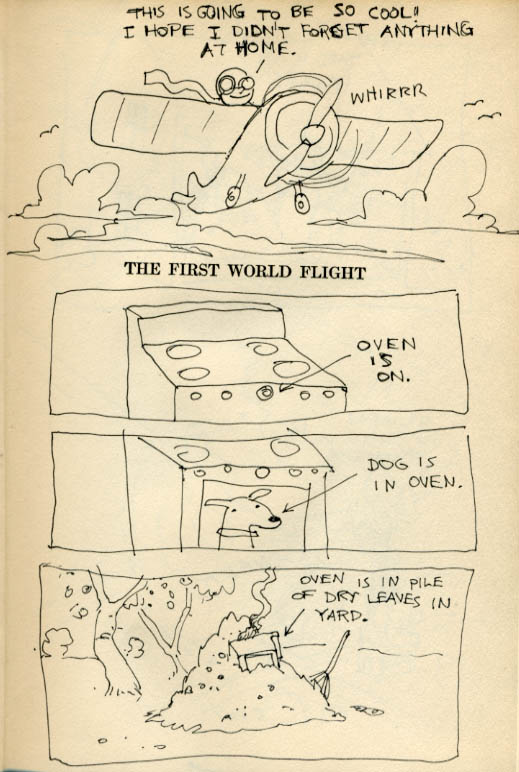 THIS IS GOING TO BE SO COOL!!
I HOPE I DIDN'T FORGET ANYTHING
AT HOME.
WHIRRR
THE FIRST WORLD FLIGHT
OVEN
IS
ON.
DOG IS
IN OVEN.
OVEN IS IN PILE
OF DRY LEAVES IN
YARD.